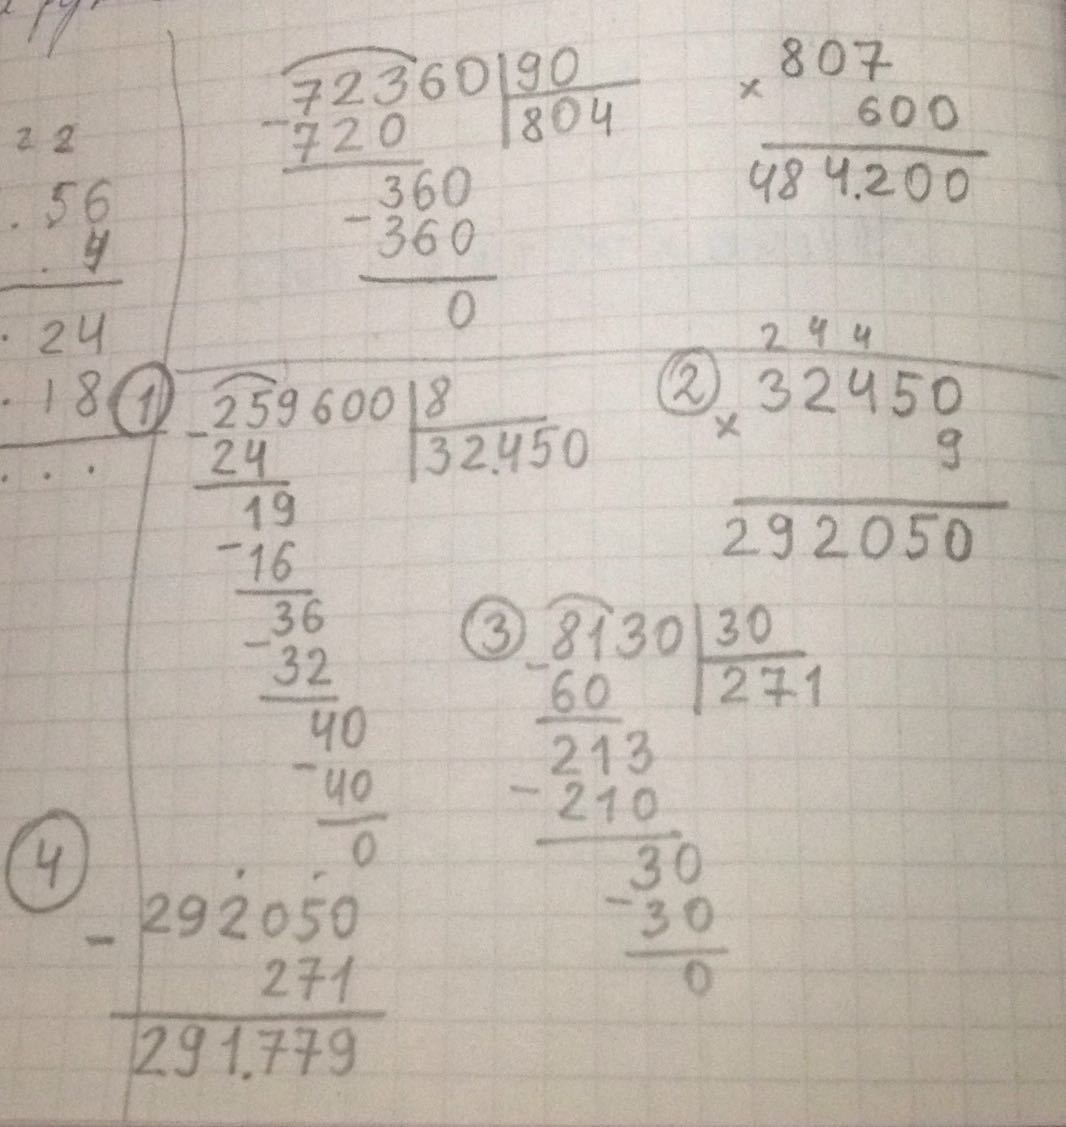 22
.56
.4
.24
.18
. . .
72360 | 90
- 720 | 804
360
- 360
0
807
× 600
484.200
① 259600 | 8
- 24 | 32.450
19
- 16
36
- 32
40
- 40
0
② 2 4 4
× 32450
9
292050
③ 8130 | 30
- 60 | 271
213
- 210
30
- 30
0
④
- 292050
271
291.779